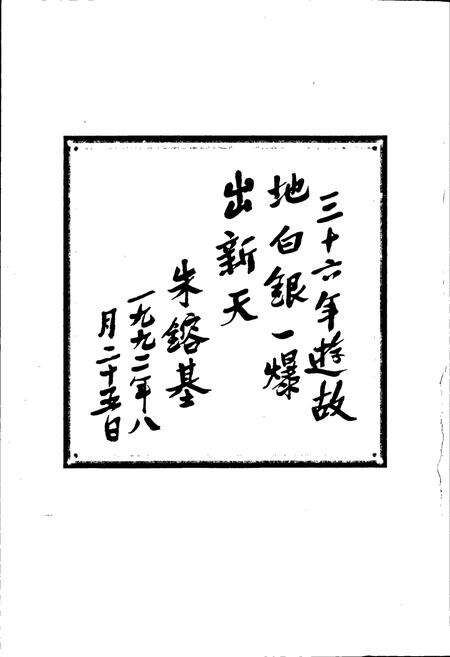 三十六年遊故
地白银一爆
出新天
朱鎔基
一九九二年八
月二十五日